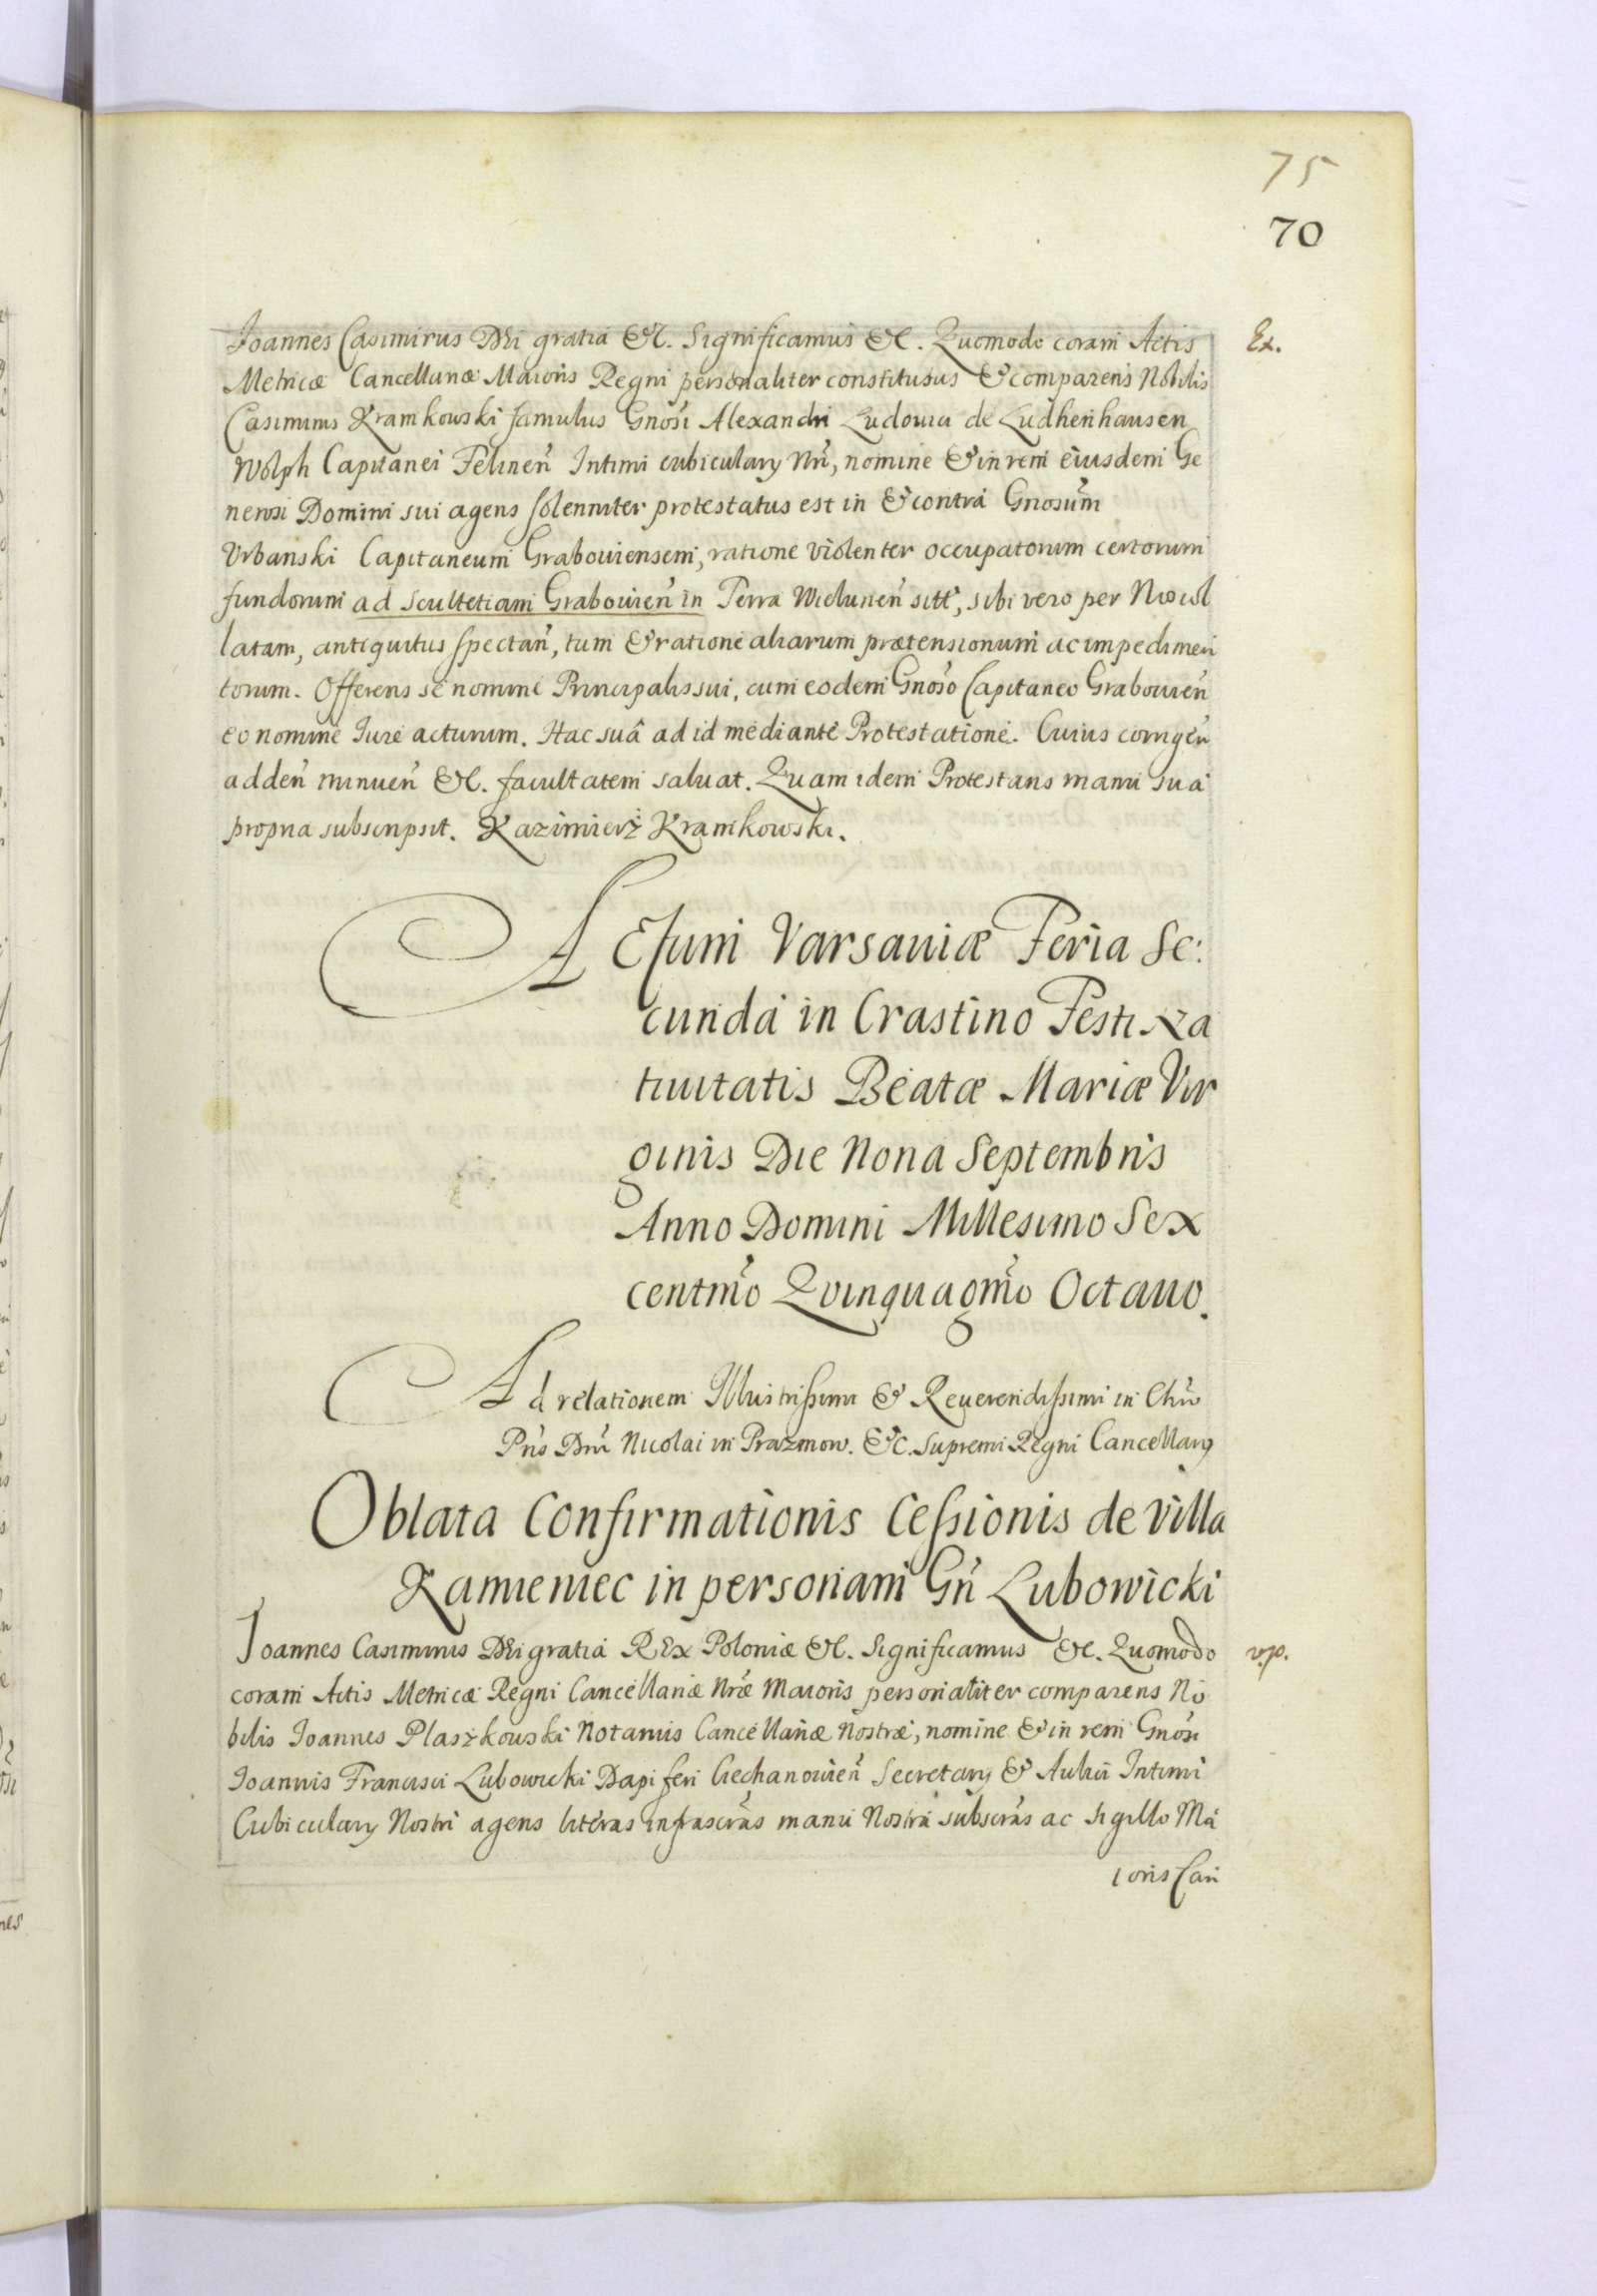 75
70
Joannes Casimirus Dei gratia &c. Significamus &c. Quomodo coram Actis Ex.
Metricæ Cancellariæ Maioris Regni personaliter constitutus & comparens Nobilis
Casimirus Kramkowski famulus Gnosi Alexandri Ludouici de Ludhenhausen
Wolph Capitanei Felinen̄ Intimi cubicularij Nr̄i, nomine & in rem eiusdem Ge
nerosi Domini sui agens solenniter protestatus est in & contra Gnosum̄
Vrbanski Capitaneum Grabouiensem, ratione violenter occupatorum certorum
fundorum ad Scultetiam Grabouien̄ in Terra Wielunen̄ sitt̄, sibi vero per Nos col
latam, antiquitus spectan̄, tum & ratione aliarum prætensionum ac impedimen
torum. Offerens se nomine Principalis sui, cum eodem Gnoso Capitaneo Grabouien̄
eo nomine Jure acturum. Hac suâ ad id mediante Protestatione. Cuius corrigen̄
adden̄ minuen̄ &c. facultatem saluat. Quam idem Protestans manu sua
propria subscripsit. Kazimierz Kramkowski.
ACtum Varsauiæ Feria Se:
cunda in Crastino Festi Na
tiuitatis Beatæ Mariæ Vir
ginis Die Nona Septembris
Anno Domini Millesimo Sex
centmo Quinquagmo Octauo.
Ad relationem Illustrissimi & Reuerendissimi in Chro
Pr̄is Dni Nicolai in Prazmow. &c. Supremi Regni Cancellarij
Oblata Confirmationis Cessionis de Villa
Kamieniec in personam Gn̄ Lubowicki
Joannes Casimirus Dei gratia REx Poloniæ &c. Significamus &c. Quomodo v.p.
coram Actis Metricæ Regni Cancellariæ Nr̄æ Maioris personaliter comparens No
bilis Joannes Plaszkouski Notarius Cancellariæ Nostræ, nomine & in rem Gnosi
Joannis Francisci Lubowicki Dapiferi Ciechanouien̄ Secretarij & Aulici Intimi
Cubicularij Nostri agens literas infrascras manu Nostra subscras ac sigillo Ma
ioris Can